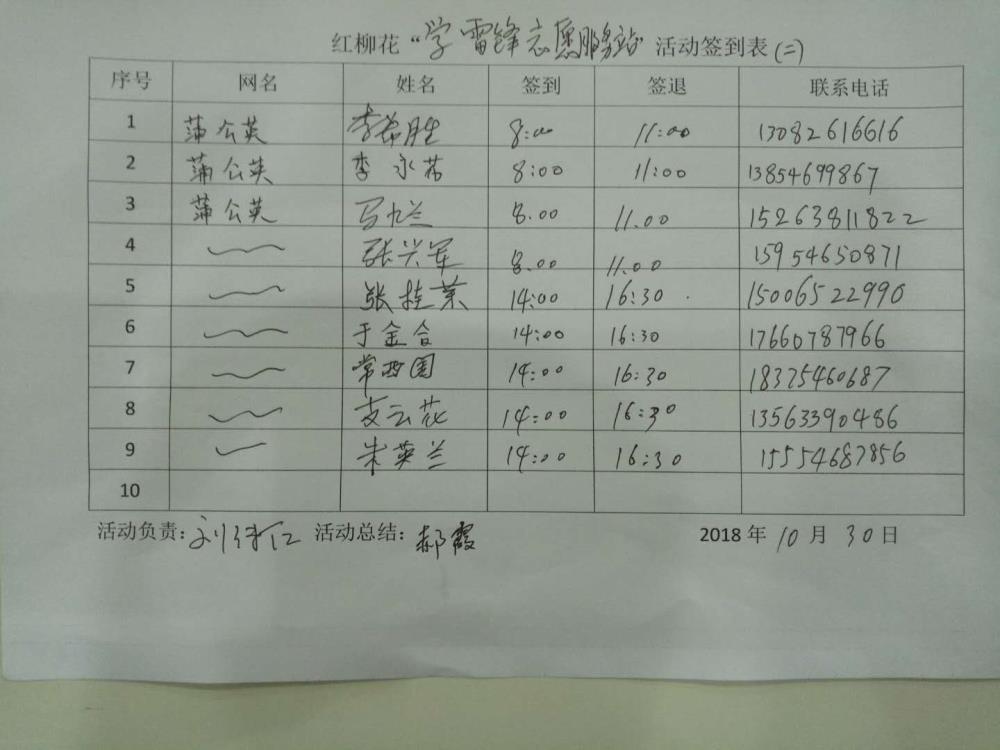 红柳花“学雷锋志愿服务站”活动签到表(二)
序号 网名 姓名 签到 签退 联系电话
1 蒲公英 李希胜 8:00 11:00 13082616616
2 蒲公英 李永芬 8:00 11:00 13854699867
3 蒲公英 马九兰 8.00 11.00 15263811822
4 张兴军 8.00 11.00 15954650871
5 张桂荣 14:00 16:30 15006522990
6 于金合 14:00 16:30 17660787966
7 常西国 14:00 16:30 18325460687
8 支云花 14:00 16:30 13563390486
9 朱英兰 14:00 16:30 15554687856
10
活动负责: 刘 仁 活动总结: 郝霞 2018年10月30日